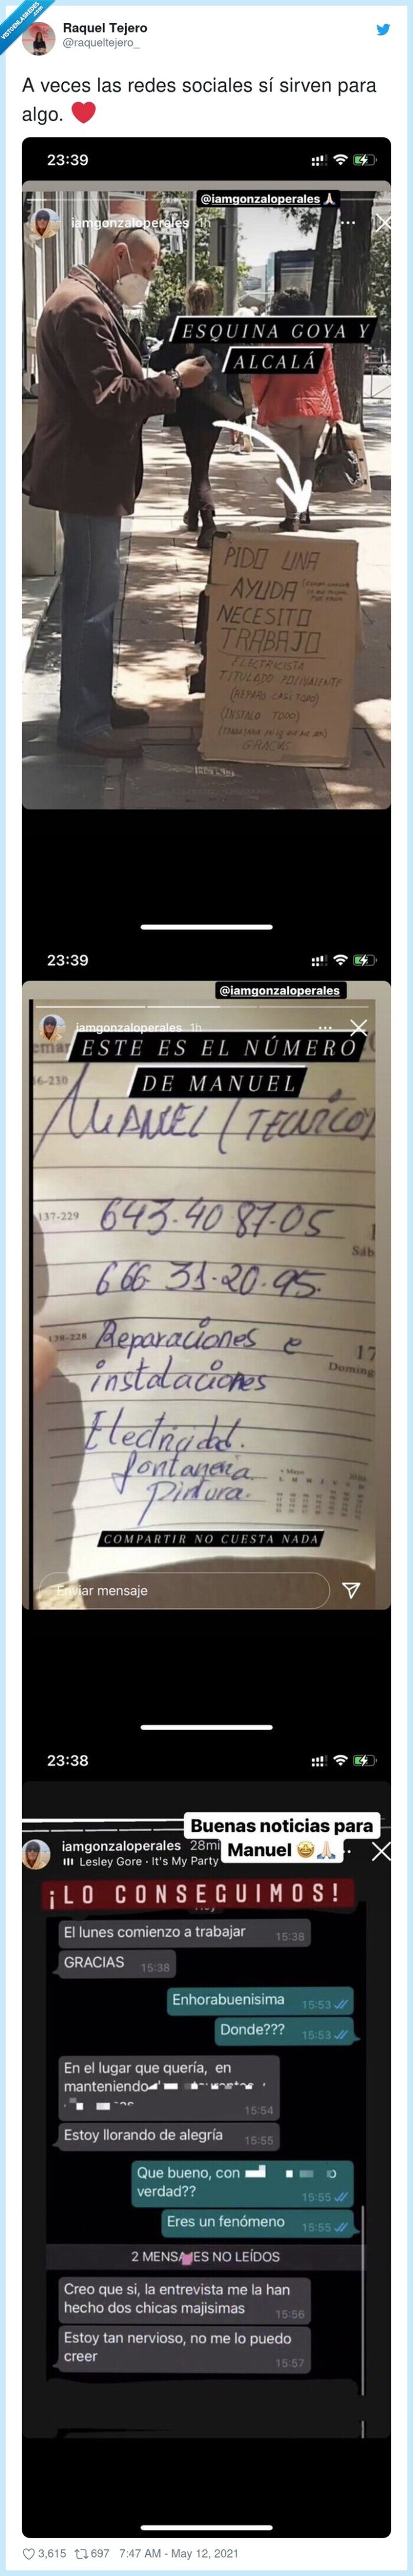 VISTOENLASREDES
.com
Raquel Tejero
@raqueltejero_
A veces las redes sociales sí sirven para
algo. ❤️
23:39
@iamgonzaloperales 🙏🏻
iamgonzaloperales 1h
ESQUINA GOYA Y
ALCALÁ
PIDO UNA
AYUDA
NECESITO
TRABAJO
ELECTRICISTA
TITULADO POLIVALENTE
(REPARO CASI TODO)
(INSTALO TODO)
GRACIAS
23:39
@iamgonzaloperales
iamgonzaloperales 1h
ESTE ES EL NÚMERO
DE MANUEL
6-230
MANUEL (TECNICO)
137-229
643-40 87-05
Sáb
666 31-20-95.
138-228
Reparaciones e
17
Doming
instalaciones
Electricidad.
fontanería
Mayo
pintura.
COMPARTIR NO CUESTA NADA
Enviar mensaje
23:38
Buenas noticias para
Manuel 🤩🙏🏻
iamgonzaloperales 28mi
Lesley Gore · It's My Party
¡LO CONSEGUIMOS!
Hoy
El lunes comienzo a trabajar 15:38
GRACIAS 15:38
Enhorabuenisima 15:53
Donde??? 15:53
En el lugar que quería, en
manteniendo
15:54
Estoy llorando de alegría 15:55
Que bueno, con
verdad?? 15:55
Eres un fenómeno 15:55
2 MENSAJES NO LEÍDOS
Creo que si, la entrevista me la han
hecho dos chicas majisimas 15:56
Estoy tan nervioso, no me lo puedo
creer 15:57
3,615 697 7:47 AM - May 12, 2021